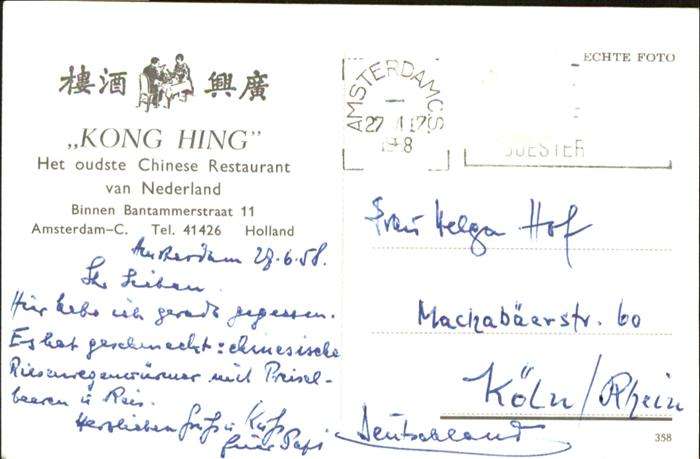 樓酒 興廣
„KONG HING"
Het oudste Chinese Restaurant
van Nederland
Binnen Bantammerstraat 11
Amsterdam–C. Tel. 41426 Holland
Amsterdam 27.6.58.
Ihr Lieben
Hier habe ich gerade gegessen.
Es hat geschmeckt: chinesische
Riesenregenwürmer mit Preisel-
beeren u Reis.
Herzlichen Gruß u Kuß
Euer Papi
ECHTE FOTO
AMSTERDAM CS
27 17
Frau Helga Hof
Machabäerstr. 60
Köln/Rhein
Deutschland
358